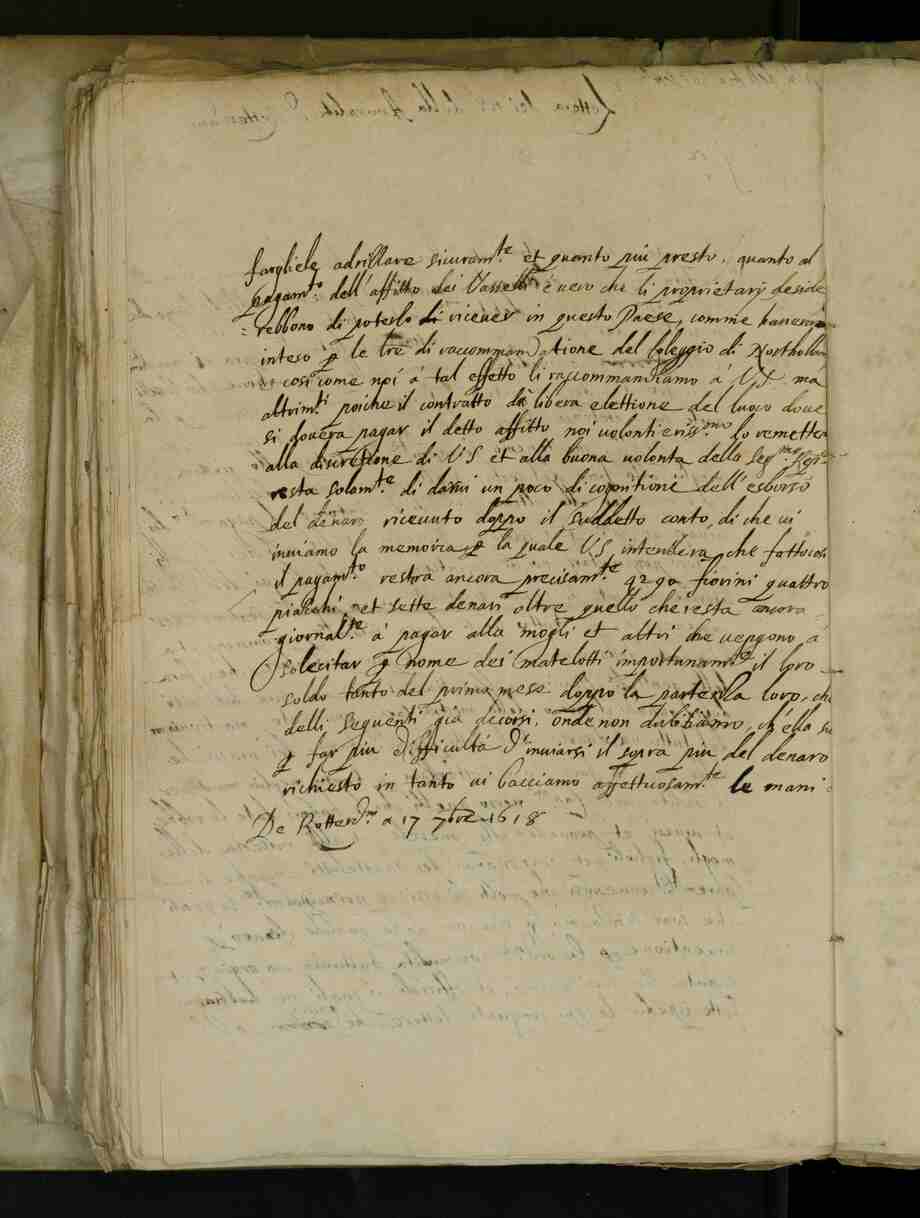 fargliele adrillare sicuram.te et quanto più presto, quanto al
pagam.to dell'affitto dei Vasselli è vero che li proprietarij deside
:rebbono di poterlo di ricever in questo Paese, comme haverà
inteso p le tre di raccommandatione del Coleggio di Northollan
cosi come noi á tal effetto li raccommandiamo á VS. ma
altrim.ti poiche il contratto dà libera elettione del luoco dove
si dovera pagar il detto affitto noi volontieriss.mo lo remetter
alla discretione di VS et alla buona volonta della Ser.ma
resta solam.te di darvi un poco di cognitione dell'esborso
del denaro ricevuto doppo il suddetto conto, di che vi
inviamo la memoria, p la quale VS intendera che fatto cosi
il pagam.to restra ancora precisam.te fiorini quattro
piacchi, et sette denari oltre quello che resta ancora
giornal.te á pagar alla mogli et altri che vengono á
solecitar p nome dei matelotti importunam.te il loro
soldo tanto del primo mese doppo la partenza loro, che
delli seguenti gia decorsi, onde non dubbitiamo, ch'ella
p far piu difficultá d'inviarsi il sopra piu del denaro
richiesto in tanto vi bacciamo affettuosam.te le mani
De Rotterd.m a 17 7bre 1618